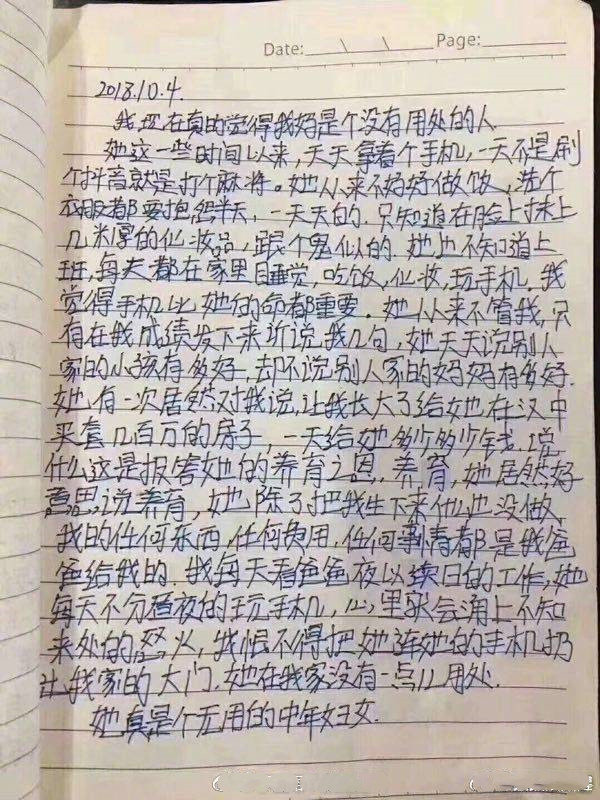 Date: \ \ Page:
2018.10.4.
我现在真的觉得我妈是个没有用处的人
她这一些时间以来,天天拿着个手机,一天不是刷
个抖音就是打个麻将。她从来不好好做饭,洗个
衣服都要抱怨半天,一天天的,只知道在脸上抹上
几米厚的化妆品,跟个鬼似的.她也不知道上
班,每天都在家里睡觉,吃饭,化妆,玩手机.我
觉得手机比她的命都重要。她从来不管我,只
有在我成绩发下来近说我几句,她天天说别人
家的小孩有多好,却不说别人家的妈妈有多好.
她,有一次居然对我说,让我长大了给她在汉中
买套几百万的房子,一天给她多少多少钱,说
什么这是报答她的养育之恩,养育,她居然好
意思说养育,她除了把我生下来什么也没做,
我的任何东西,任何费用,任何事情都是我爸
爸给我的.我每天看爸爸夜以续日的工作,她
每天不分昼夜的玩手机,心里就会涌上不知
来处的怒火,我恨不得把她连她的手机扔
让我家的大门.她在我家没有一点儿用处.
她真是个无用的中年妇女.